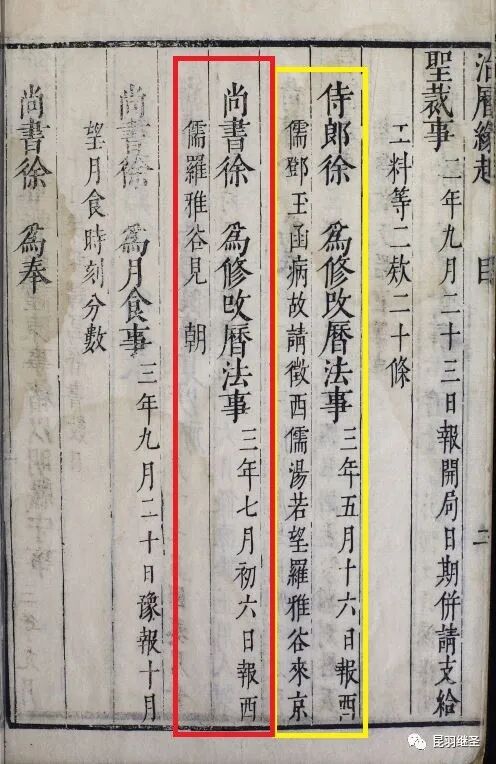 治曆緣起 目 二
聖裁事 二年九月二十三日報開局日期併請支給
工料等二欵二十條
侍郎徐 爲修改曆法事 三年五月十六日報西
儒鄧玉函病故請徵西儒湯若望羅雅谷來京
尚書徐 爲修改曆法事 三年七月初六日報西
儒羅雅谷見 朝
尚書徐 爲月食事 三年九月二十日豫報十月
望月食時刻分數
尚書徐 爲奉
昆羽继圣